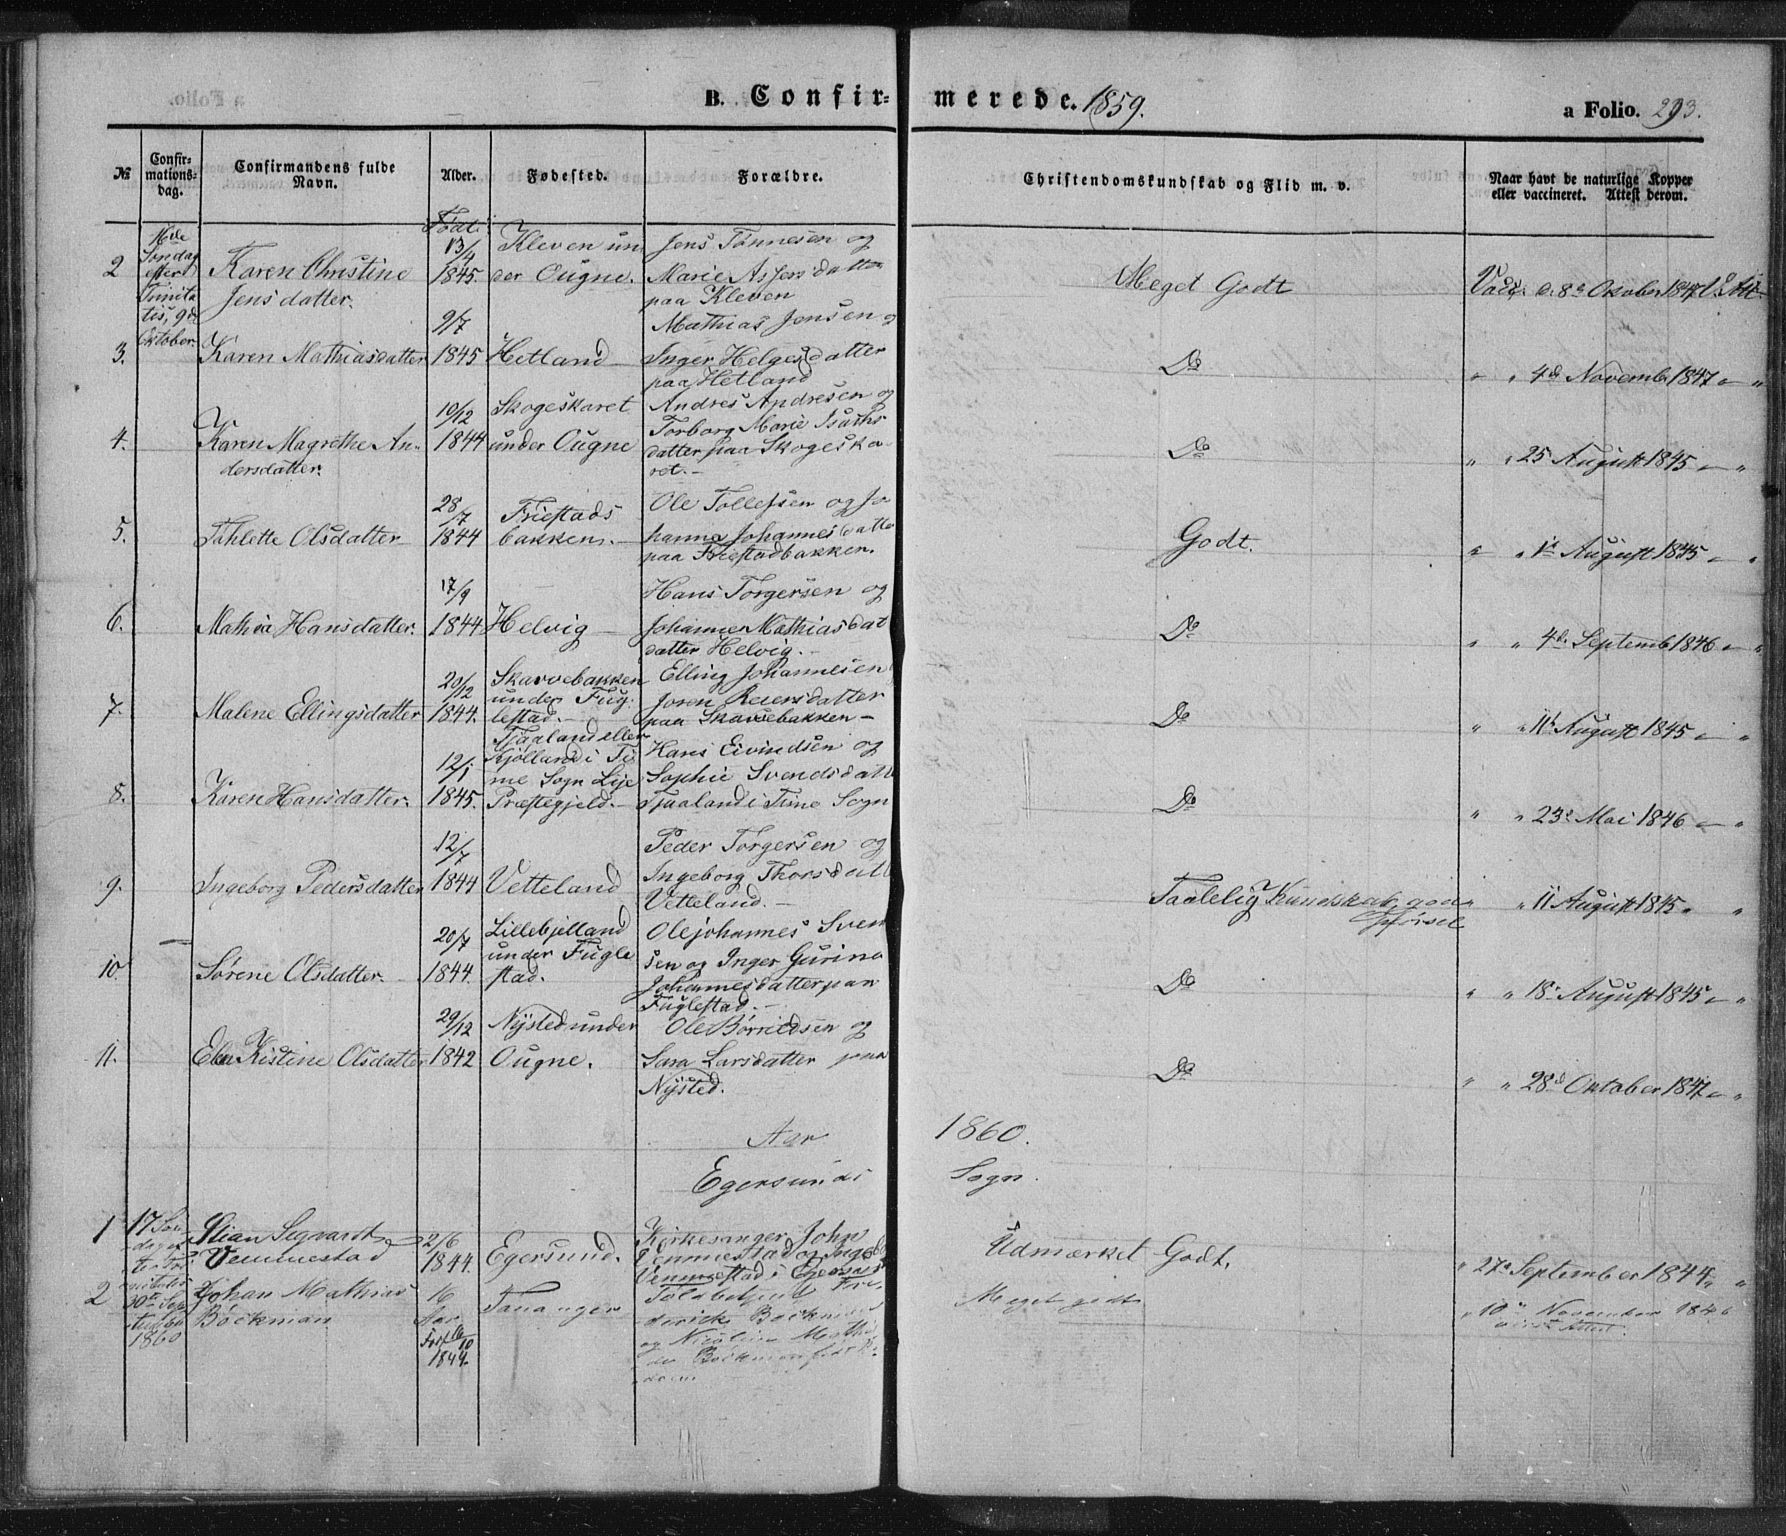 B. Confir-merede. 1859.
a Folio. 293.
№
Confir-
mations-
dag.
Confirmandens fulde
Navn.
Alder.
Fødested.
Forældre.
Christendomskundskab og Flid m. v.
Naar havt de naturlige Kopper
eller vaccineret. Attest derom.
Født
2
Søndag
efter
Trinita
tis, 9de
Oktober.
Karen Christine
Jensdatter.
13/4
1845.
Kleven un
der Ougne.
Jens Tønnesen og
Marie Assersdatter
paa Kleven
Meget Godt
Vacc. d. 8de Oktober 1847
3.
Karen Mathiasdatter
9/7
1845
Hetland
Mathias Jensen og
Inger Helgesdatter
paa Hetland
Do
" " 4de Novembr 1847 "
4.
Karen Magrethe An-
dersdatter.
10/12
1844
Skogeskaret
under Ougne
Andres Andresen og
Torborg Marie
datter paa Skogeska-
ret.
Do
" " 25 August 1845 "
5.
Tahlette Olsdatter
28/7
1844
Friestads
bakken.
Ole Tollefsen og Jo
hanna Johannesdatte
paa Friestadbakken.
Godt.
" " 1ste August 1845 "
6.
Mathea Hansdatter.
17/9
1844
Helvig
Hans Torgersen og
Johanne Mathiasdat
datter Helvig.
Do
" " 4de Septemb 1846 "
7.
Malene Ellingsdatter
20/12
1844.
Skarvebakken
under Fug-
lestad.
Elling Johannesen
Joren Reiersdatter
paa Skarvebakken
Do
" " 11te August 1845 "
8.
Karen Hansdatter.
12/1
1845.
Tjaaland eller
Kjølland i Ti
me Sogn Lije
Præstegjeld.
Hans Eivindsen og
Sophie Svendsdatt
Tjaaland i Time Sogn
Do
" " 23de Mai 1846 "
9.
Ingeborg Pedersdatter
12/7
1844
Vetteland
Peder Torgersen og
Ingeborg Thorsdatt
Vetteland.
Taalelig Kundskab, god
Opførsel
" " 11 August 1845 "
10.
Sørene Olsdatter.
20/7
1844.
Lillebjelland
under Fugle
stad.
Ole Johannes Sven
sen og Inger Gurina
Johannesdatter paa
Fuglestad.
Do
" " 18de August 1845 "
11.
Elen Kistine Olsdatter
29/12
1842
Nysted under
Ougne.
Ole Børrildsen og
Sara Larsdatter paa
Nysted.
Do
" " 28de Oktober 1847 "
Aar 1860.
Egersunds Sogn.
1
17 Søn
Stian Segvardt
Vemmestad
2/6
1844.
Egersund.
Kirkesanger John
Vemmestad og
Vemmestad i Egersund
Udmærket Godt.
" 27de September 1844 "
2
30te Sep
tember
1860
Johan Mathias
Böckman
16
Aar
Født
/10
1844.
Tananger
Toldbetjent Fre
derick Böckman
og Nicoline Mathi
de Böckman
Meget godt
" 10de November 1846
Attest.